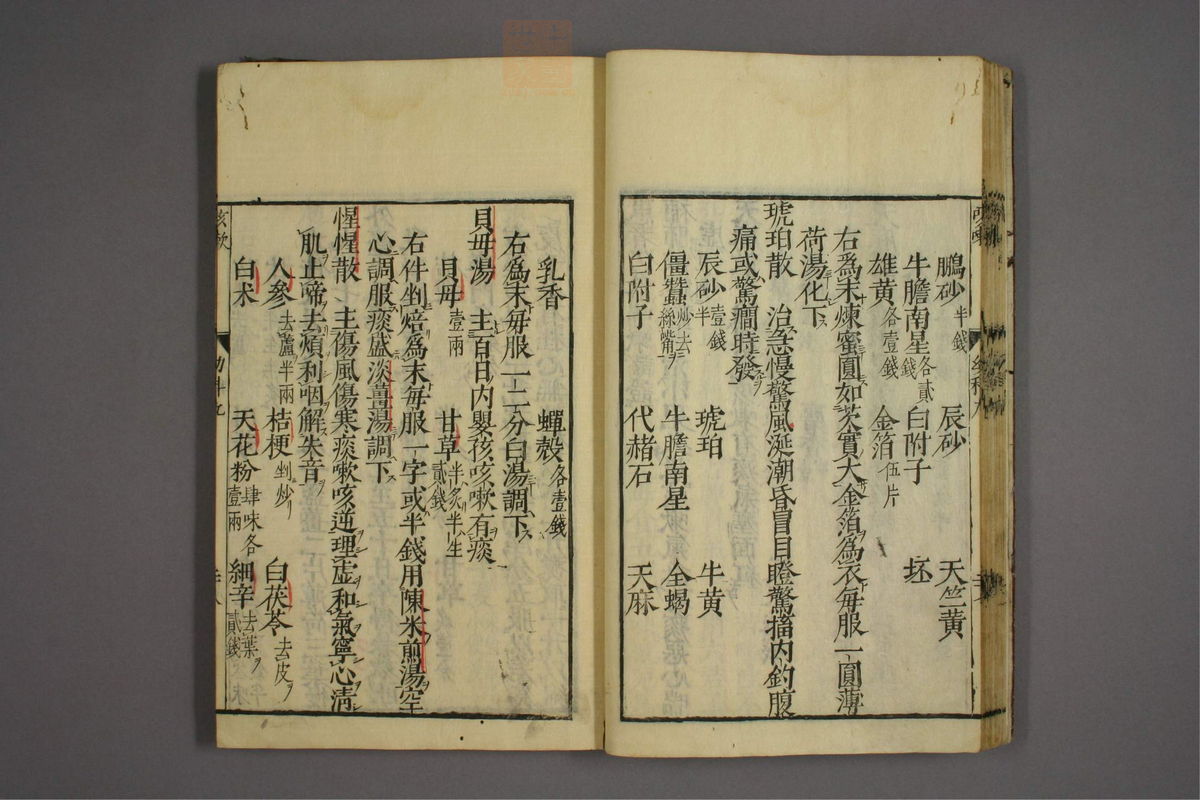 鵬砂半錢　辰砂　天竺黃
牛膽南星各貳錢　白附子　坯
雄黃各壹錢　金箔伍片
右爲末煉蜜圓如芡實大金箔爲衣每服一圓薄
荷湯化下
琥珀散　治急慢驚風涎潮昏冒目瞪驚搐內釣腹
痛或驚癎時發
辰砂壹錢半　琥珀　牛黃
僵蠶炒去絲嘴　牛膽南星　全蝎
白附子　代赭石　天麻
乳香　蟬殼各壹錢
右爲末每服一二分白湯調下
貝母湯　主百日內嬰孩咳嗽有痰
貝母壹兩　甘草半炙半生貳錢
右件剉焙爲末每服一字或半錢用陳米煎湯空
心調服痰盛淡薑湯調下
惺惺散　主傷風傷寒痰嗽咳逆理虛和氣寧心清
肌止啼去煩利咽解失音
人參去蘆半兩　桔梗剉炒　白茯苓去皮
白朮　天花粉肆味各壹兩　細辛去葉貳錢
咳嗽